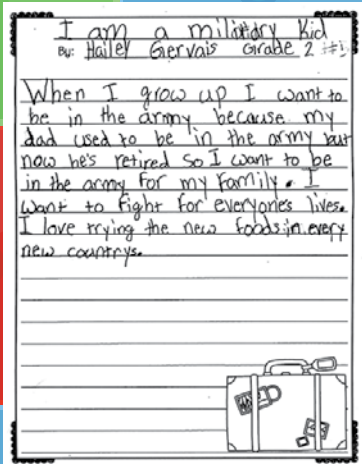 I am a military Kid
By: Hailey Gervais Grade 2
When I grow up I want to
be in the army because my
dad used to be in the army but
now he's retired so I want to be
in the army for my family. I
want to fight for everyone's lives.
I love trying the new foods in every
new countrys.